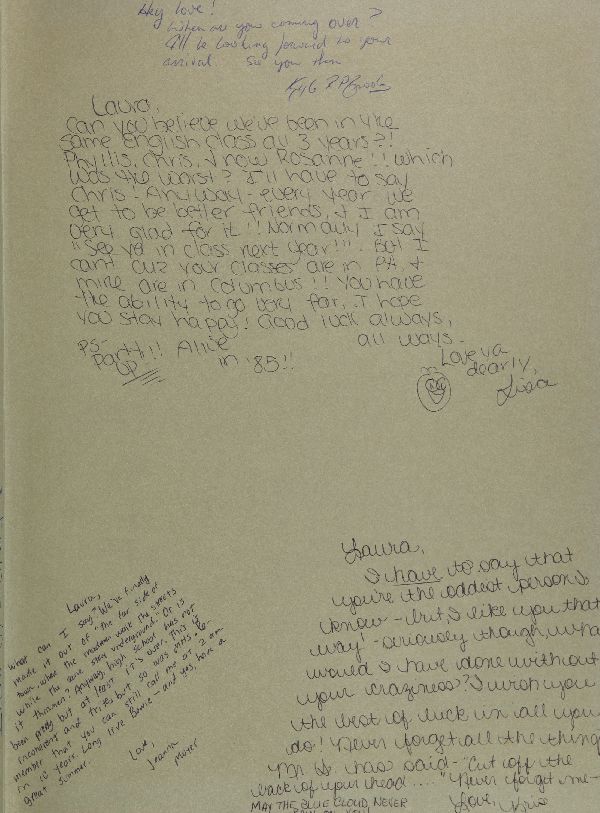 Hey love!
When are you coming over?
I'll be looking forward to your
arrival. See you then
Laura,
Can you believe we've been in the
same English class all 3 years?!
Phyllis, Chris, & now Rosanne!! Which
was the worst? I'll have to say
Chris! Anyway - every year we
get to be better friends, & I am
very glad for it!! Normally I say
"See ya in class next year!!". But I
can't cuz your classes are in PA, &
mine are in Columbus!! You have
the ability to go very far. I hope
you stay happy! Good luck always,
all ways.
Love ya
dearly,
Lisa
PS-
Party!! Alice
UP in '85!!
Laura,
What can I say? We've finally
made it out of "the far side of
town, where the madmen walk the streets
while the sane stay underground." Or is
it thinmen? Anyway, high school has not
been pretty but at least it's over. This is
incoherent and trite but so was
member that you can still call me at 2 am
in 10 years. Long live Bowie - and yes, have a
great summer.
Love,
Jeanna
Laura,
I have to say that
you're the oddest person I
know - but I like you that
way! - seriously though, wha
would I have done without
your craziness? I wish you
the best of luck in all you
do! Never forget all the thing
Mr. has said - "Cut off the
back of your head...." Never forget me -
Love,
MAY THE BLUE CLOUD NEVER